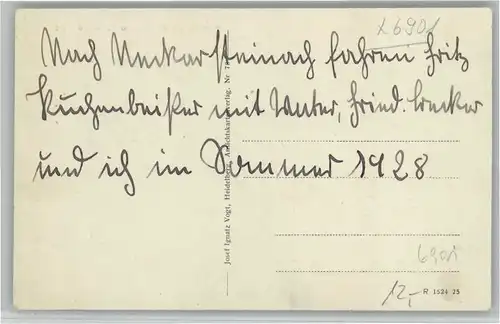 x 6901
Nach Neckarsteinach fahren Fritz
Kuchenbeißer mit Vater, Fried.
und ich im Sommer 1928
Josef Ignatz Vogt, Heidelberg, Ansichtskartenverlag, Nr
6901
12,-
R 1524 25